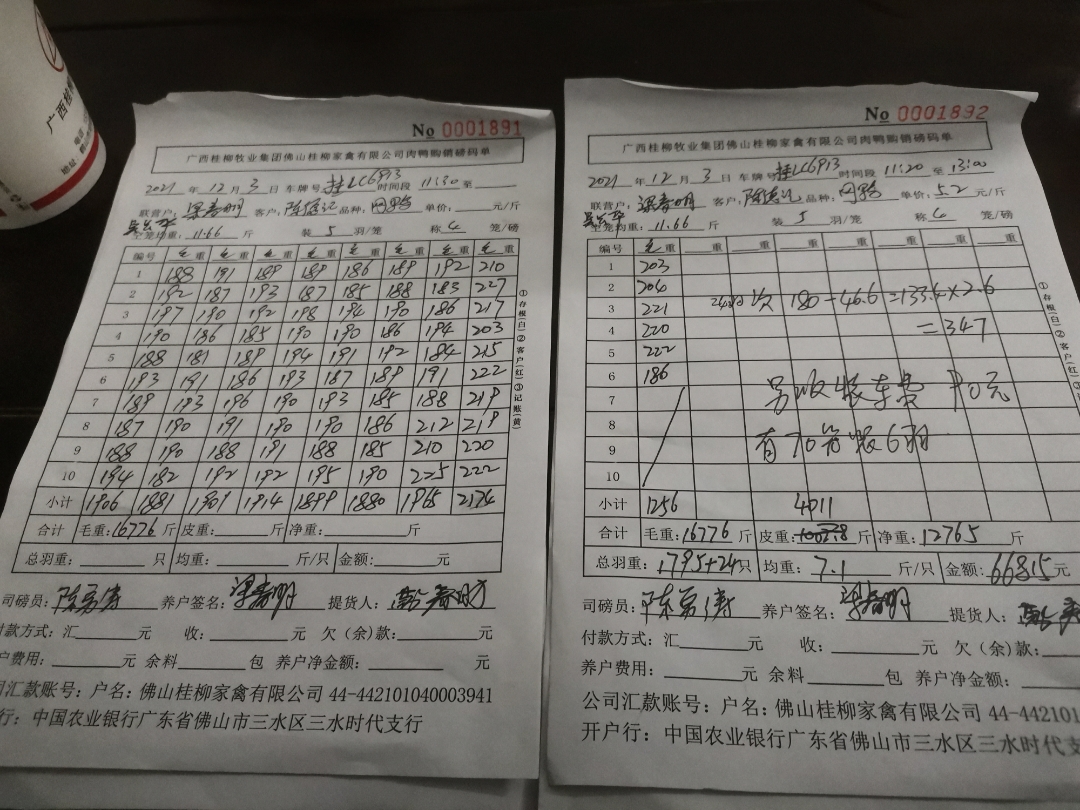 广西桂柳
No 0001891
广西桂柳牧业集团佛山桂柳家禽有限公司肉鸭购销磅码单
2021年12月3日 车牌号 桂LC6913 时间段 11:30 至
联营户: 梁春明 客户: 品种: 单价: 元/斤
空笼均重: 11.66 斤 装 5 羽/笼 称 4 笼/磅
编号 毛重 毛重 毛重 毛重 毛重 毛重 毛重 毛重
1 188 191 189 189 186 189 192 210
2 192 187 193 187 185 188 183 227
3 197 190 192 198 194 190 186 217
4 190 186 185 190 190 186 194 203
5 188 181 189 194 191 192 184 215
6 193 191 186 193 187 189 191 222
7 189 193 196 190 193 185 188 219
8 187 190 191 190 190 186 212 219
9 188 190 188 191 188 185 210 220
10 194 182 192 192 195 190 225 222
小计 1906 1881 1901 1914 1899 1880 1965 2174
合计 毛重: 16776 斤 皮重: 斤 净重: 斤
总羽重: 只 均重: 斤/只 金额: 元
司磅员: 养户签名: 梁春明 提货人:
付款方式: 汇 元 收: 元 欠(余)款: 元
户费用: 元 余料 包 养户净金额: 元
司汇款账号: 户名: 佛山桂柳家禽有限公司 44-442101040003941
行: 中国农业银行广东省佛山市三水区三水时代支行
①存根(白)②客户(红)③记账(黄)
No 0001892
广西桂柳牧业集团佛山桂柳家禽有限公司肉鸭购销磅码单
2021年12月3日 车牌号 桂LC6913 时间段 11:20 至 13:00
联营户: 梁春明 客户: 品种: 单价: 5.2 元/斤
空笼均重: 11.66 斤 装 5 羽/笼 称 4 笼/磅
编号 毛重 重 重 重 重 重 重 重
1 203
2 204
3 221 次 180-46.6=133.4×2.6
4 220 =347
5 222
6 186
7 另收装车费 90元
8
9 有70笼装6羽
10
小计 1256 4011
合计 毛重: 16776 斤 皮重: 斤 净重: 12765 斤
总羽重: 1795+24 只 均重: 7.1 斤/只 金额: 66815 元
司磅员: 养户签名: 梁春明 提货人:
付款方式: 汇 元 收: 元 欠(余)款:
养户费用: 元 余料 包 养户净金额:
公司汇款账号: 户名: 佛山桂柳家禽有限公司 44-44210
开户行: 中国农业银行广东省佛山市三水区三水时代支
①存根(白)②客户(红)③